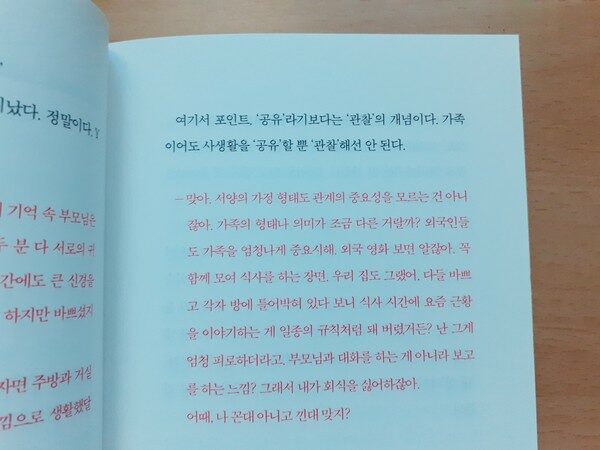 이났다. 정말이다.
기억 속 부모님은
두 분 다 서로의 귀
간에도 큰 신경을
하지만 바쁘셨지
자면 주방과 거실
낌으로 생활했달
여기서 포인트. ‘공유’라기보다는 ‘관찰’의 개념이다. 가족
이어도 사생활을 ‘공유’할 뿐 ‘관찰’해선 안 된다.
– 맞아. 서양의 가정 형태도 관계의 중요성을 모르는 건 아니
잖아. 가족의 형태나 의미가 조금 다른 거랄까? 외국인들
도 가족을 엄청나게 중요시해. 외국 영화 보면 알잖아. 꼭
함께 모여 식사를 하는 장면. 우리 집도 그랬어. 다들 바쁘
고 각자 방에 틀어박혀 있다 보니 식사 시간에 요즘 근황
을 이야기하는 게 일종의 규칙처럼 돼 버렸거든? 난 그게
엄청 피로하더라고. 부모님과 대화를 하는 게 아니라 보고
를 하는 느낌? 그래서 내가 회식을 싫어하잖아.
어때, 나 꼰대 아니고 낀대 맞지?